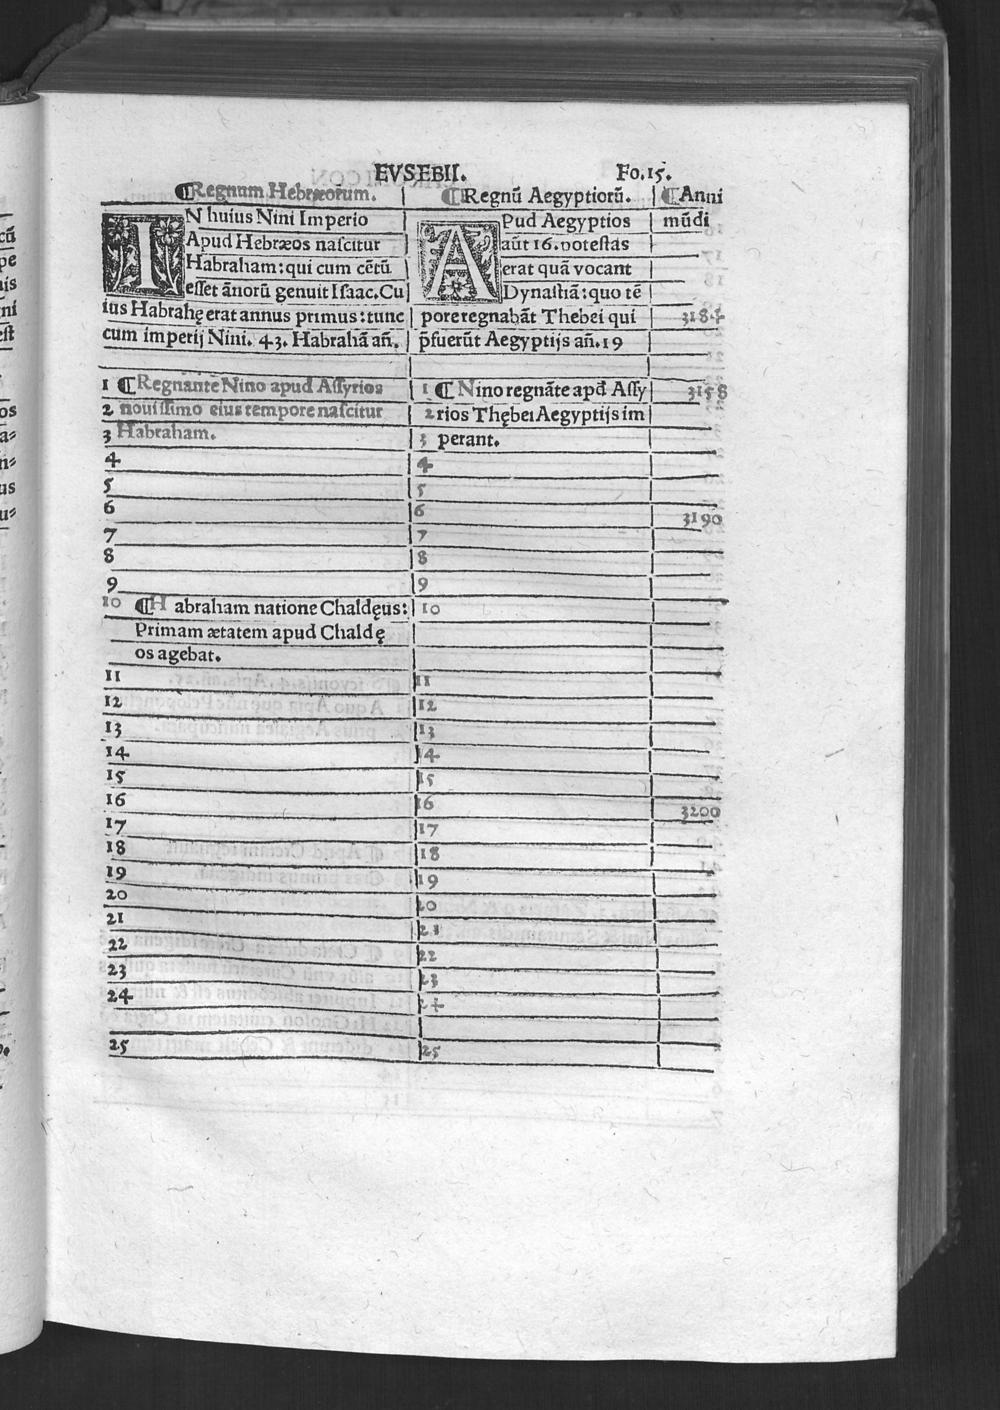 EVSEBII. Fo.15.
¶Regnum Hebræorum.
IN huius Nini Imperio
Apud Hebræos nascitur
Habraham: qui cum cētū
esset ānorū genuit Isaac. Cu
ius Habrahę erat annus primus: tunc
cum imperij Nini. 43. Habrahā añ.
1 ¶Regnante Nino apud Assyrios
2 nouissimo eius tempore nascitur
3 Habraham.
4
5
6
7
8
9
10 ¶Habraham natione Chaldęus:
Primam ætatem apud Chaldę
os agebat.
11
12
13
14
15
16
17
18
19
20
21
22
23
24
25
¶Regnū Aegyptiorū.
APud Aegyptios
aūt 16. potestas
erat quā vocant
Dynastiā: quo tē
pore regnabāt Thebei qui
p̄fuerūt Aegyptijs añ. 19
1 ¶Nino regnāte apđ Assy
2 rios Thębei Aegyptijs im
3 perant.
4
5
6
7
8
9
10
11
12
13
14
15
16
17
18
19
20
21
22
23
24
25
¶Anni
mūdi
3184
3158
3190
3200